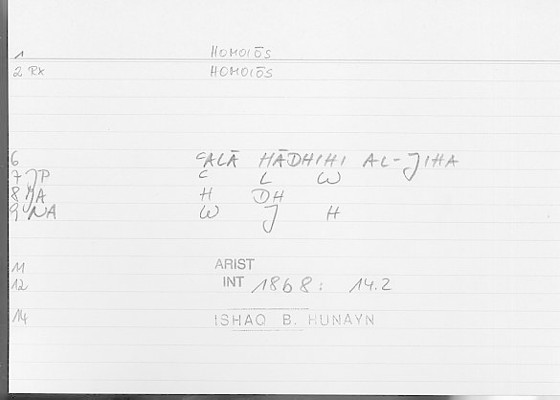 1 HOMOIŌS
2 RX HOMOIŌS
6 ʿALĀ HĀDHIHI AL-JIHA
7 JP ʿ L W
8 MA H DH
9 NA W J H
11 ARIST
12 INT 1868: 14.2
14 ISHAQ B. HUNAYN